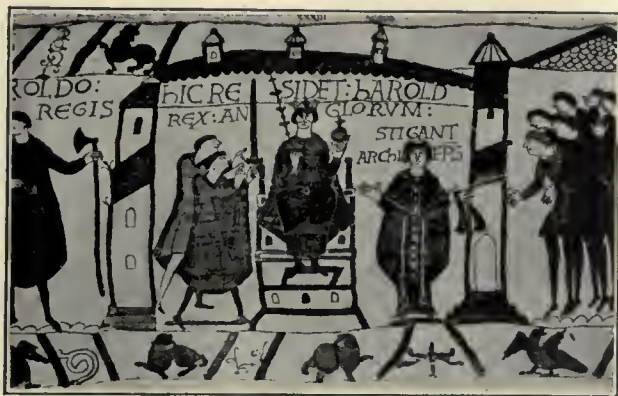 ROLDO:
REGIS
hIC RE SIDET: hAROLD
REX: AN GLORVM:
STIGANT
ARChI EPS